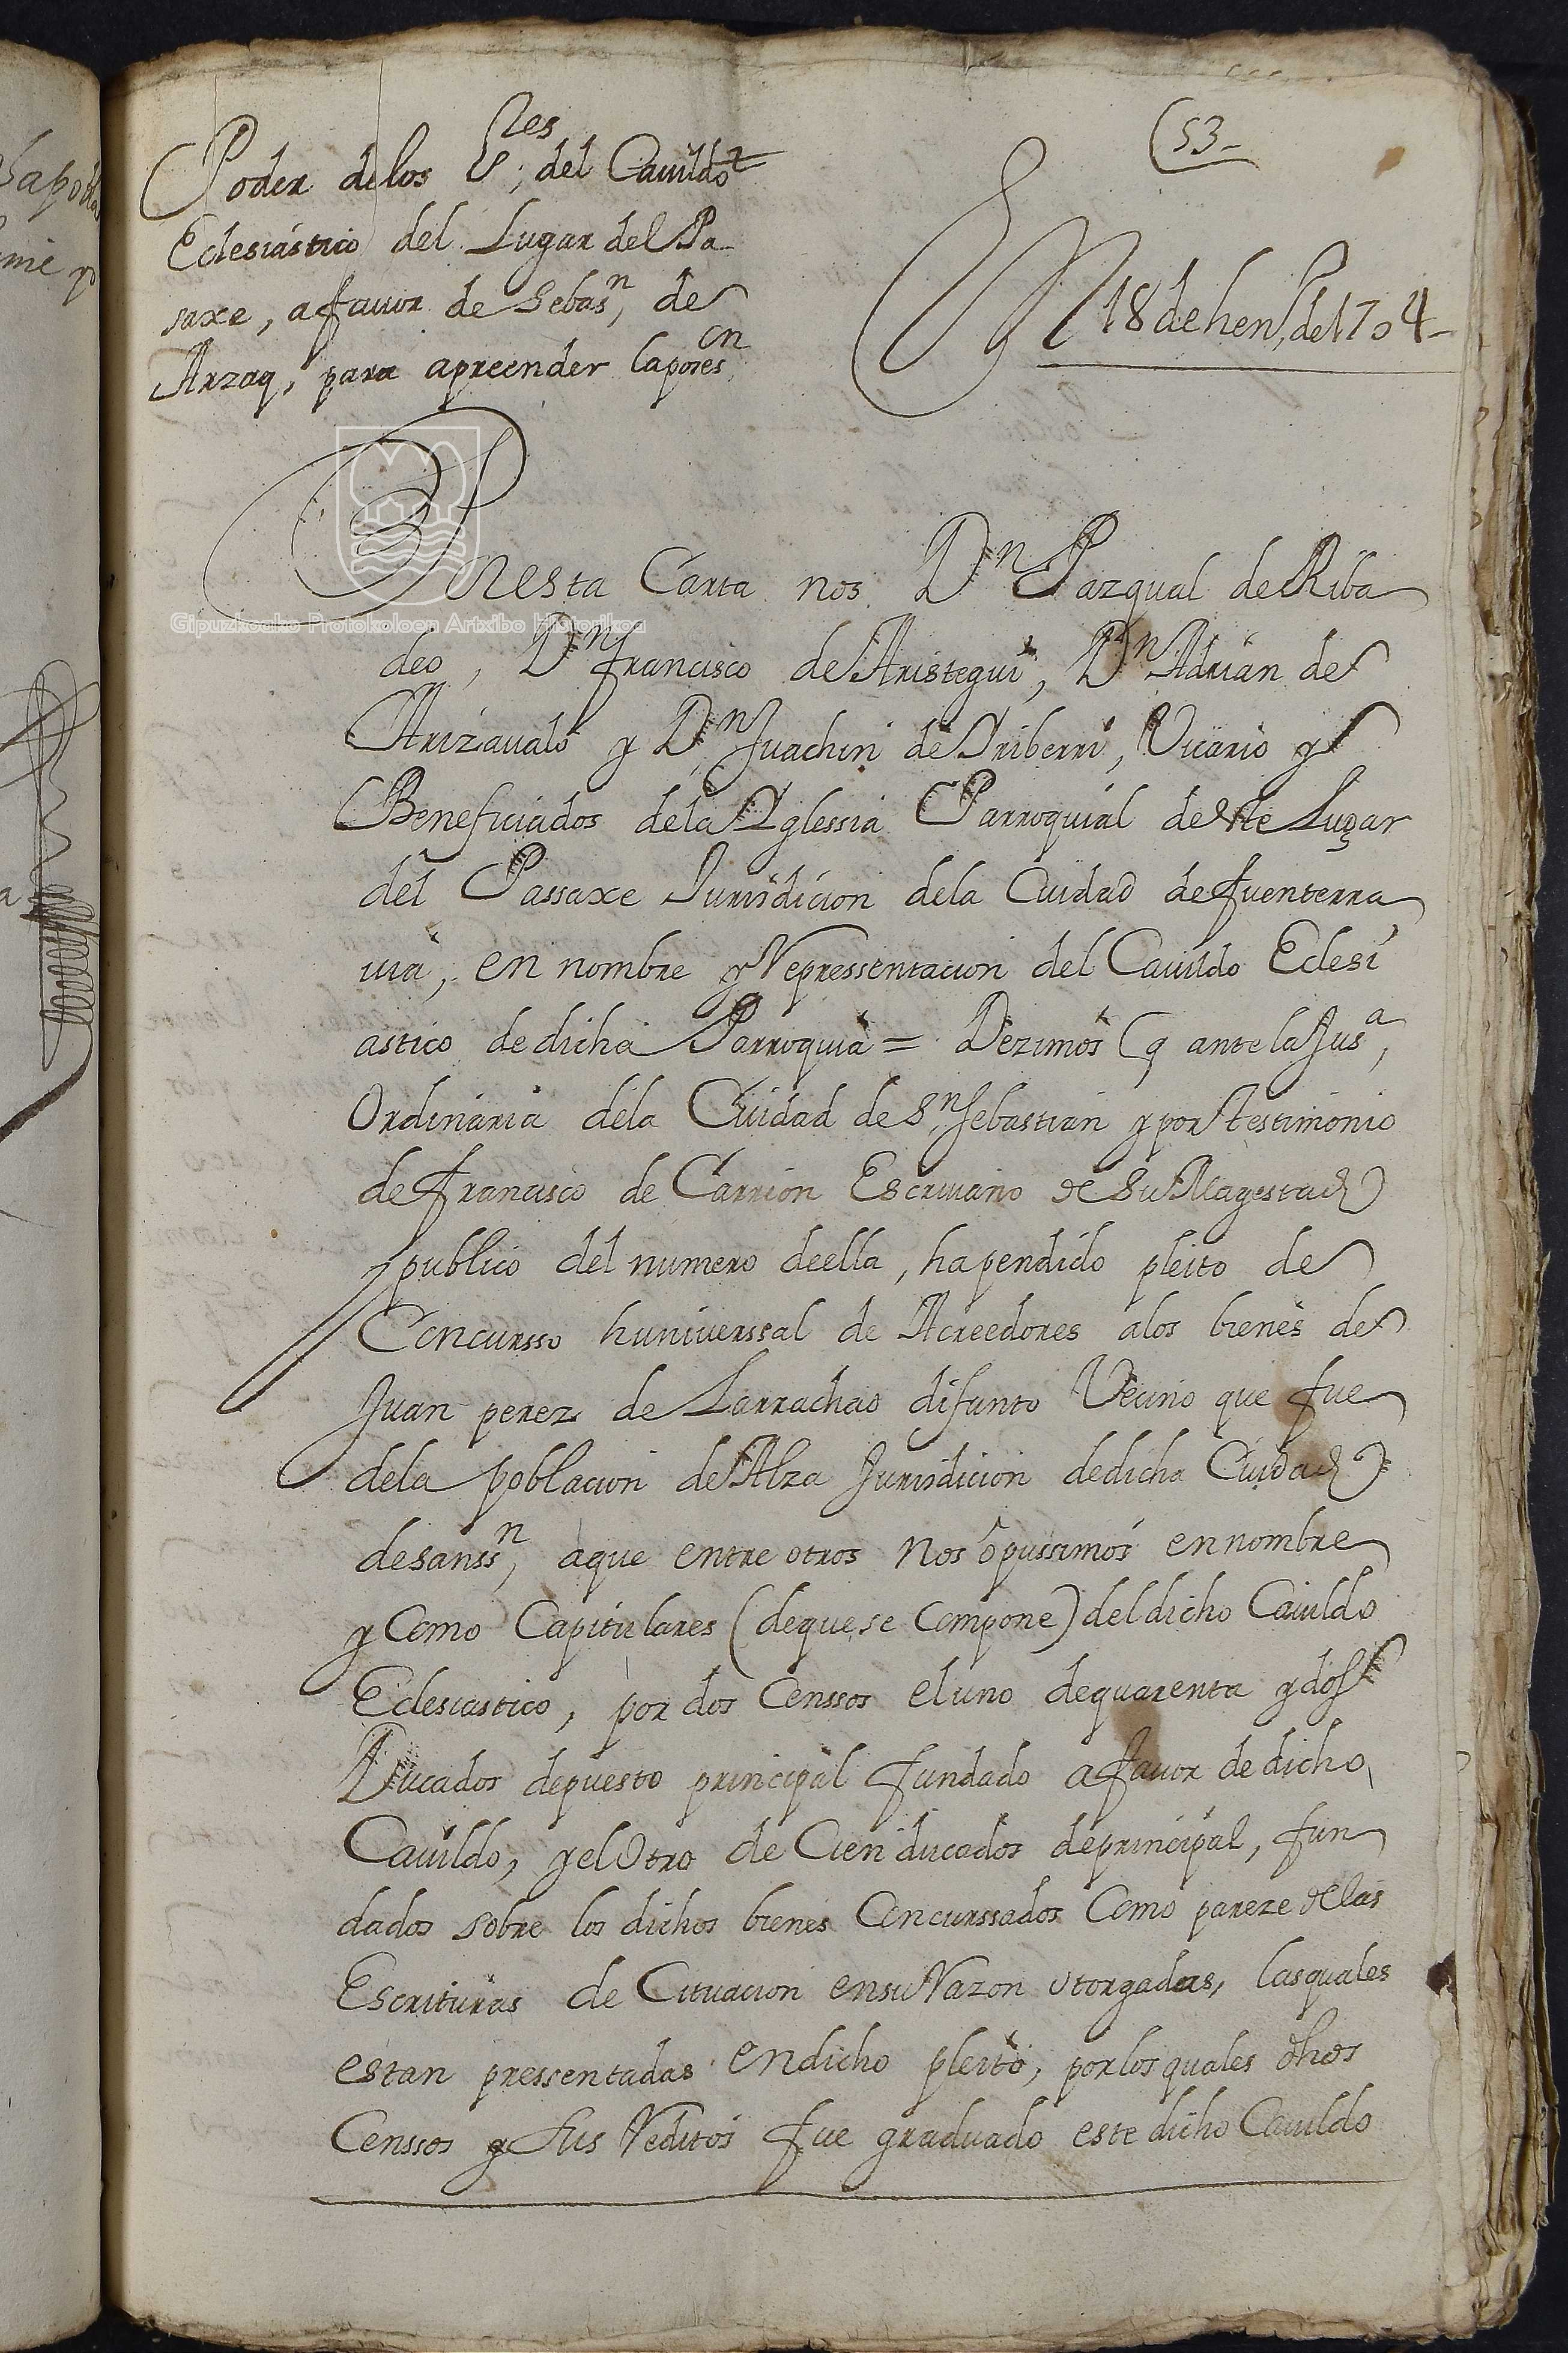 (53-
Poder delos S.res del Cauildo
Eclesiástico del Lugar del Pa-
saxe, afauor de Sebas.n de
Arzaq, para apreender laposes.on
18 de hen.º de 1704-
Gipuzkoako Protokoloen Artxibo Historikoa
En esta Carta nos D.n Pazqual de Riba
deo, D.n francisco de Aristegui, D.n Adrian de
Arizaualo y D.n Juachin de Yriberri, Vicario y
Beneficiados dela Yglessia Parroquial deste Lugar
del Passaxe Jurisdicion dela Ciudad de fuenterra
uia, en nombre y Repressentacion del Cauildo Eclesi
astico de dicha Parroquia = Dezimos (q antela Jus.a
Ordinaria dela Ciudad de S.n Sebastian y por testimonio
de francisco de Carrion Escriuano de Su Magestad
publico del numero deella, hapendido pleito de
Concursso huniuerssal de Acreedores alos bienes de
Juan perez de Larrachao difunto Vecino que fue
dela poblacion de Alza Jurisdicion dedicha Ciudad
desanss.n, aque entre otros Nos opussimos ennombre
y Como Capitulares (dequese Compone) deldicho Cauildo
Eclesiastico, por dos Censsos eluno dequarenta ydos
Ducados depuesto principal fundado afauor de dicho
Cauildo, yelOtro de Cien ducados deprincipal, fun
dados sobre los dichos bienes Concurssados Como pareze delas
Escrituras de Cituacion ensuRazon otorgadas, lasquales
estan pressentadas endicho pleito, porlosquales dhos
Censsos y sus Reditos fue graduado este dicho Cauildo